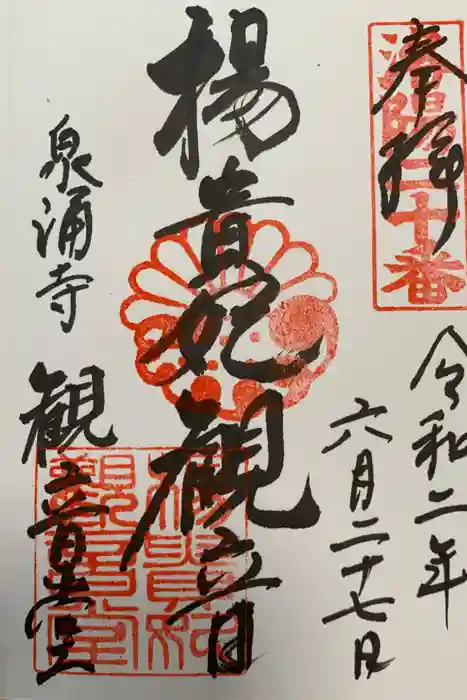 奉拝
洛陽二十番
令和二年
六月二十七日
楊貴妃観音
泉涌寺
観音堂
楊貴妃
観音堂